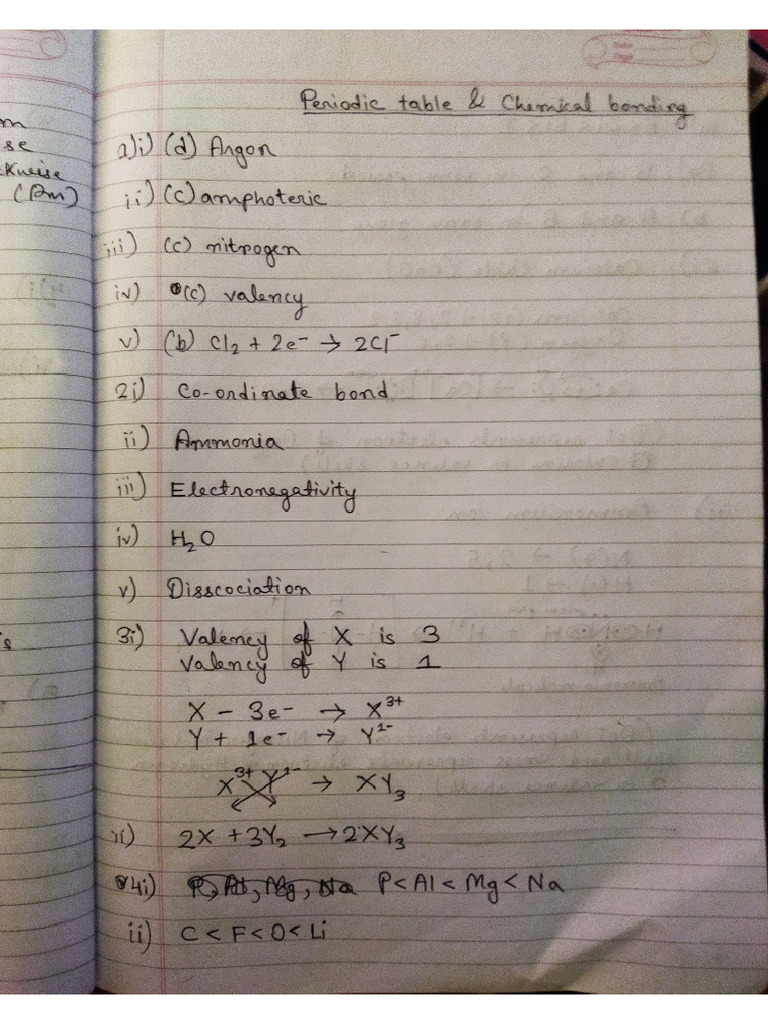 m
se
kwise
(Am)
Periodic table & Chemical bonding
a)i) (d) Argon
ii) (c) amphoteric
iii) (c) nitrogen
iv) (c) valency
v) (b) Cl₂ + 2e⁻ → 2Cl⁻
2i) Co-ordinate bond
ii) Ammonia
iii) Electronegativity
iv) H₂O
v) Disscociation
3i) Valency of X is 3
Valency of Y is 1
X - 3e⁻ → X³⁺
Y + 1e⁻ → Y¹⁻
X³⁺ Y¹⁻ → XY₃
ii) 2X + 3Y₂ → 2XY₃
4i) P, Al, Mg, Na P < Al < Mg < Na
ii) C < F < O < Li